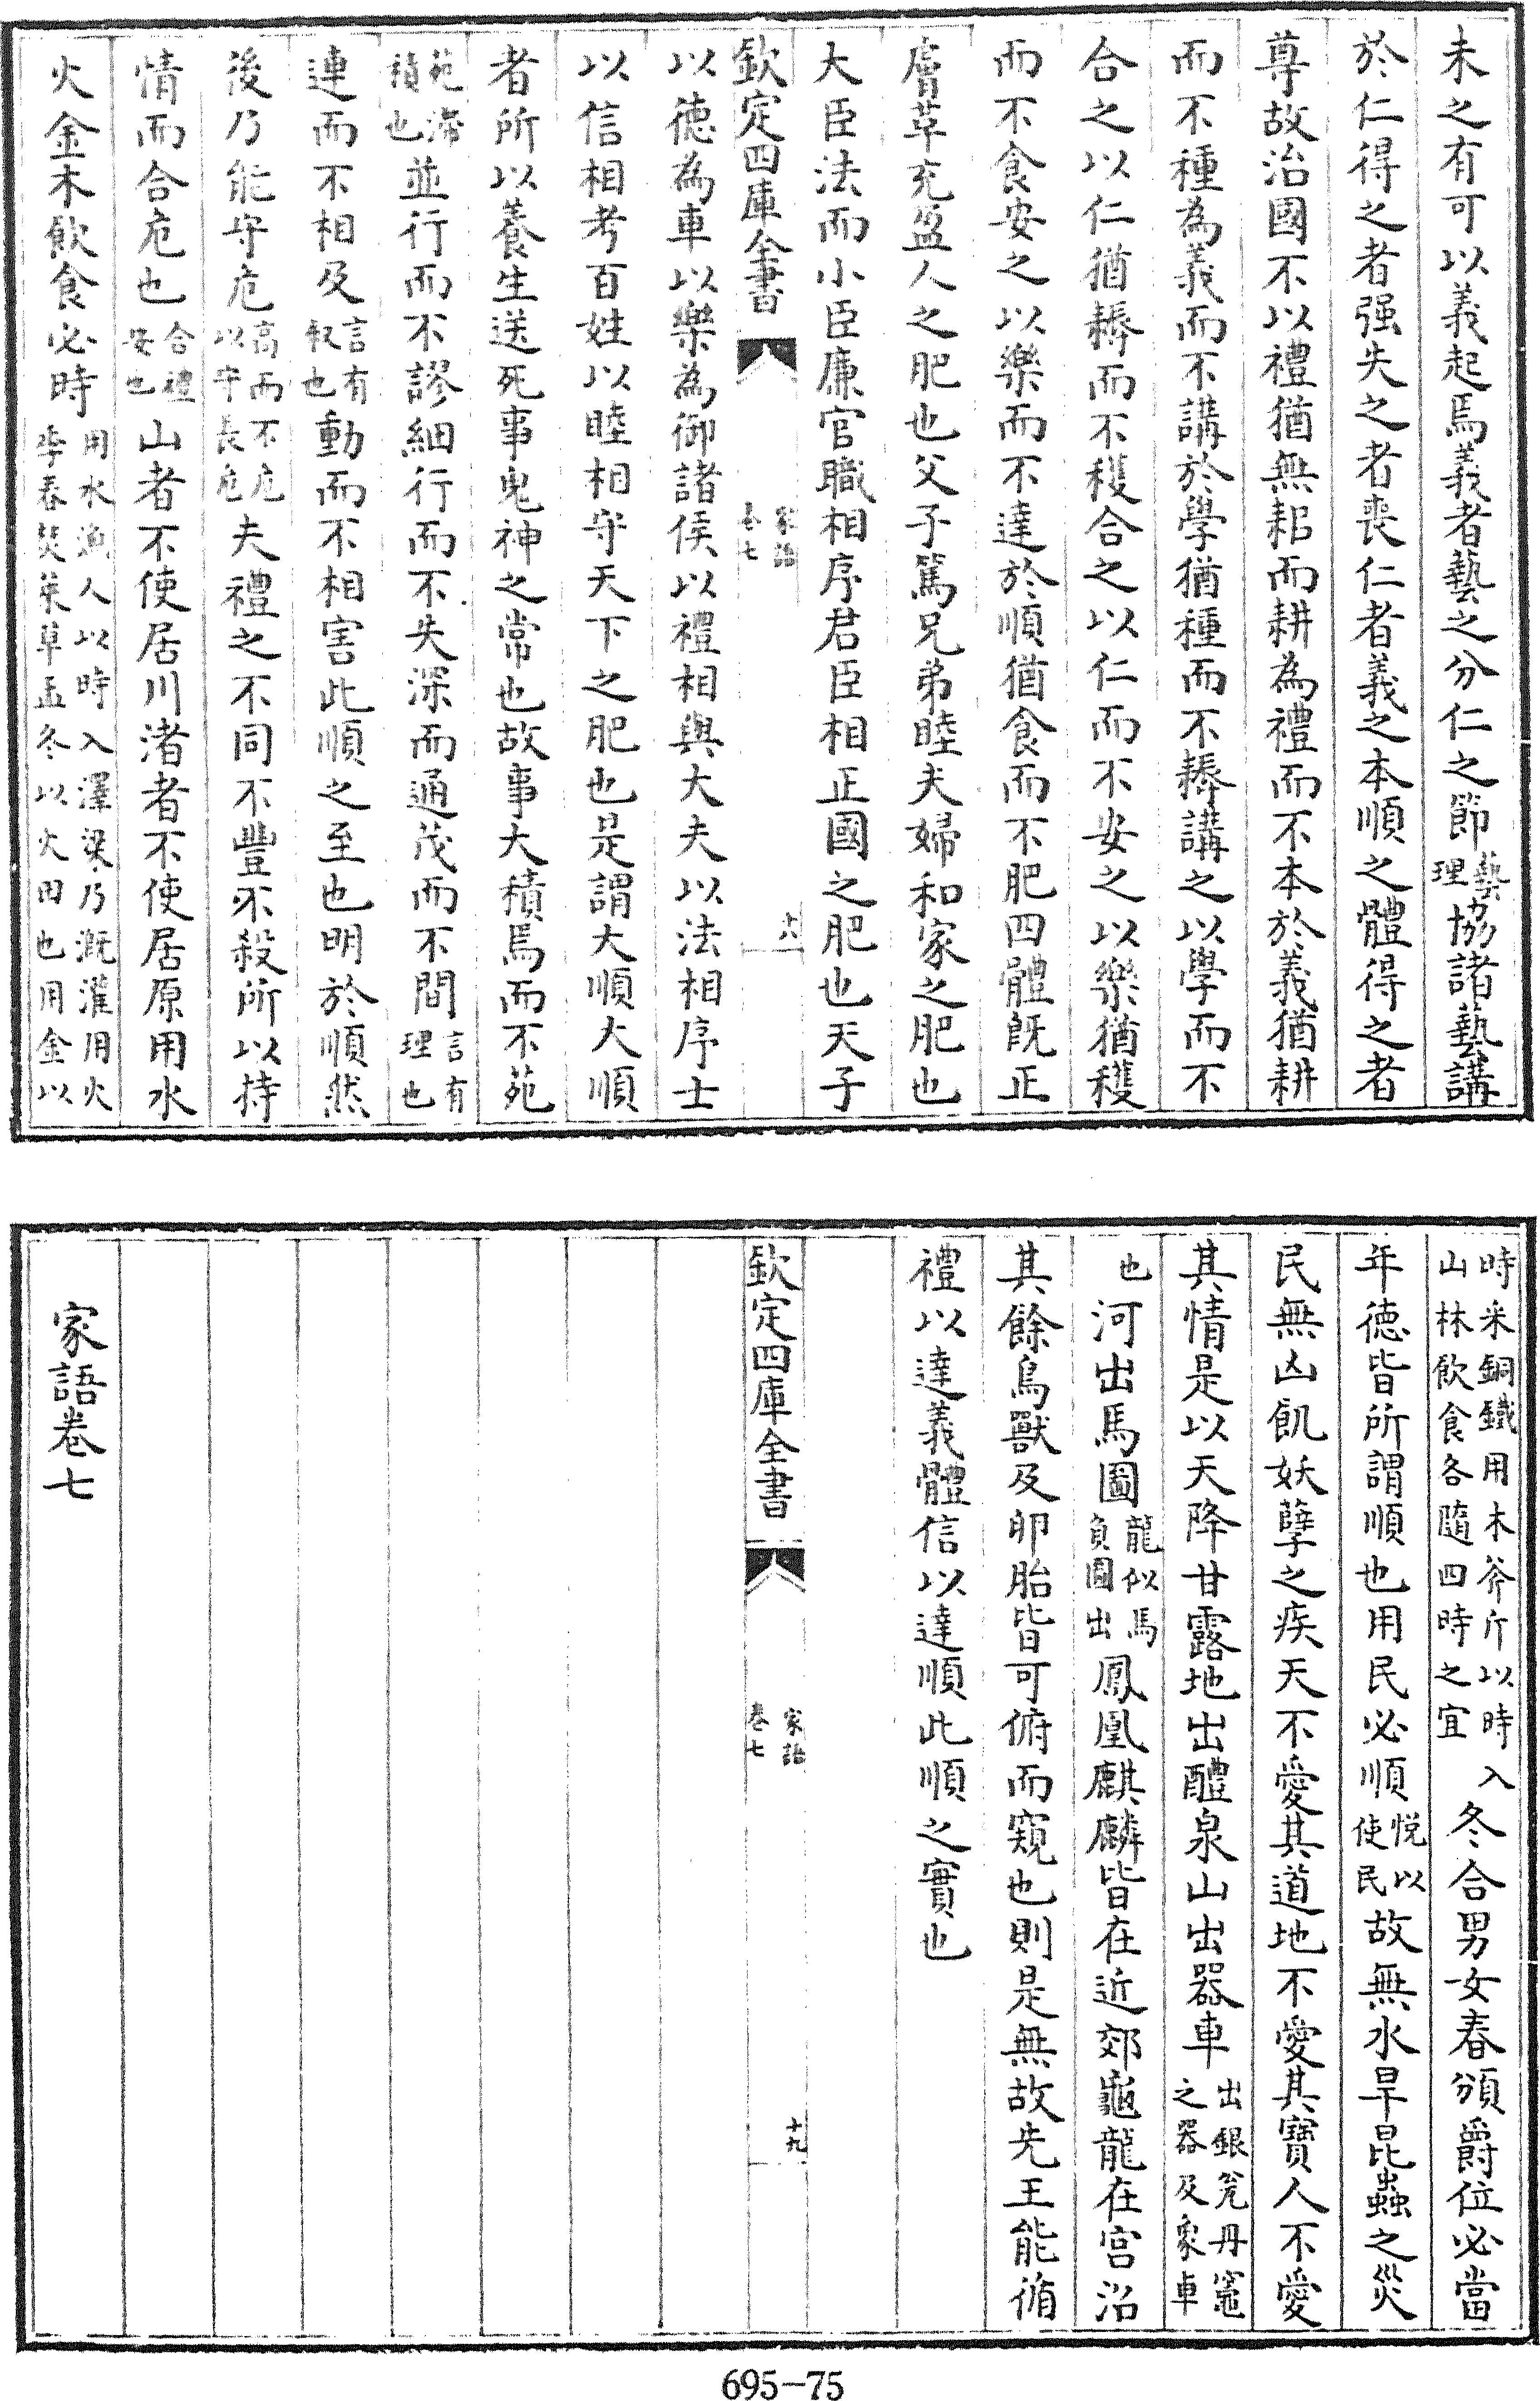 未之有可以義起焉義者藝之分仁之節藝理協諸藝講
於仁得之者强失之者喪仁者義之本順之體得之者
尊故治國不以禮猶無耜而耕為禮而不本於義猶耕
而不種為義而不講於學猶種而不耨講之以學而不
合之以仁猶耨而不穫合之以仁而不安之以樂猶穫
而不食安之以樂而不達於順猶食而不肥四體既正
膚革充盈人之肥也父子篤兄弟睦夫婦和家之肥也
大臣法而小臣廉官職相序君臣相正國之肥也天子
欽定四庫全書 家語卷七 十八
以徳為車以樂為御諸侯以禮相與大夫以法相序士
以信相考百姓以睦相守天下之肥也是謂大順大順
者所以養生送死事鬼神之常也故事大積焉而不苑
苑滯積也並行而不謬細行而不失深而通茂而不間言有理也
連而不相及言有叙也動而不相害此順之至也明於順然
後乃能守危高而不危以守長危夫禮之不同不豐不殺所以持
情而合危也合禮安也山者不使居川渚者不使居原用水
火金木飲食必時用水漁人以時入澤梁乃溉灌用火季春焚萊草孟冬以火田也用金以
時采銅鐵用木斧斤以時入山林飲食各隨四時之宜冬合男女春頒爵位必當
年徳皆所謂順也用民必順悦以使民故無水旱昆蟲之災
民無凶飢妖孽之疾天不愛其道地不愛其寶人不愛
其情是以天降甘露地出醴泉山出器車出銀瓮丹竈之器及象車
也河出馬圖龍似馬負圖出鳳凰麒麟皆在近郊龜龍在宫沼
其餘鳥獸及卵胎皆可俯而窺也則是無故先王能脩
禮以達義體信以達順此順之實也
欽定四庫全書 家語卷七 十九
家語卷七
695-75